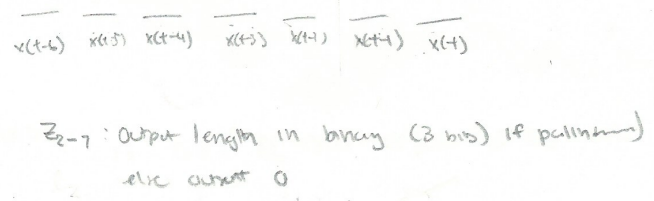 x(t-6) x(t-5) x(t-4) x(t-3) x(t-2) x(t-1) x(t)
Z2-7 : Output length in binary (3 bits) if palindrome)
else output 0